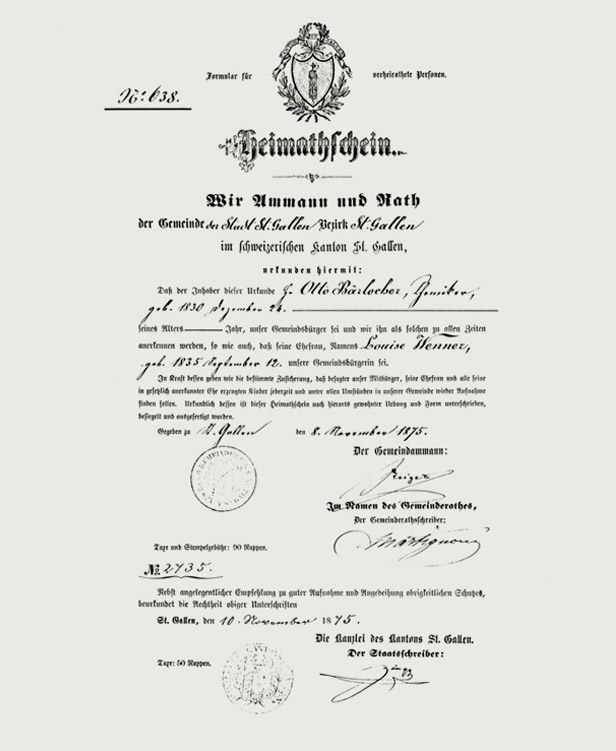 Formular für verheirathete Personen.
No. 638.
Heimathschein.
Wir Ammann und Rath
der Gemeinde der Stadt St. Gallen Bezirk St. Gallen
im schweizerischen Kanton St. Gallen,
urkunden hiermit:
Daß der Inhaber dieser Urkunde Hr Otto Bärlocher, Chemiker,
geb. 1830 Dezember 24.
seines Alters Jahr, unser Gemeindsbürger sei und wir ihn als solchen zu allen Zeiten
anerkennen werden, so wie auch, daß seine Ehefrau, Namens Louise Wenner,
geb. 1835 September 12. unsere Gemeindsbürgerin sei.
In Kraft dessen geben wir die bestimmte Zusicherung, daß besagter unser Mitbürger, seine Ehefrau und alle seine
in gesetzlich anerkannter Ehe erzeugten Kinder jederzeit und unter allen Umständen in unserer Gemeinde wieder Aufnahme
finden sollen. Urkundlich dessen ist dieser Heimathschein nach hierorts gewohnter Uebung und Form unterschrieben,
besiegelt und ausgefertigt worden.
Gegeben zu St. Gallen den 8. November 1875.
Der Gemeindammann:
Im Namen des Gemeinderathes,
Der Gemeinderathsschreiber:
Taxe und Stempelgebühr: 90 Rappen.
No. 2735.
Nebst angelegentlicher Empfehlung zu guter Aufnahme und Angedeihung obrigkeitlichen Schutzes,
beurkundet die Aechtheit obiger Unterschriften
St. Gallen, den 10. November 1875.
Die Kanzlei des Kantons St. Gallen.
Der Staatsschreiber:
Taxe: 50 Rappen.